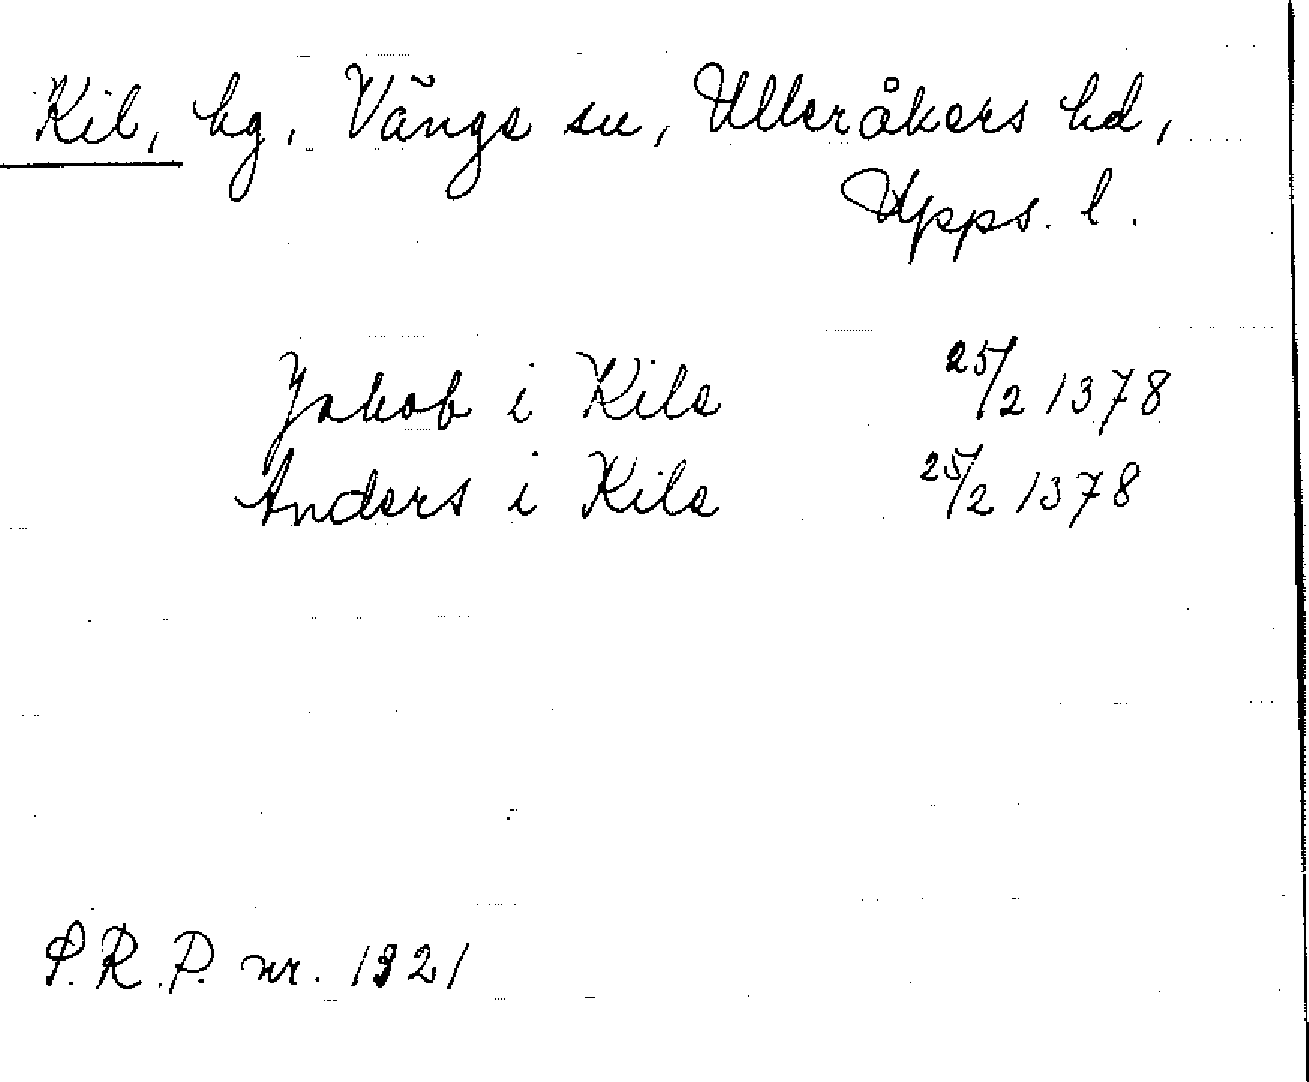 Kil, by, Vänge sn, Ulleråkers hd,
Upps. l.
Jakob i Kile 25/2 1378
Anders i Kile 25/2 1378
S.R.P. nr. 1321